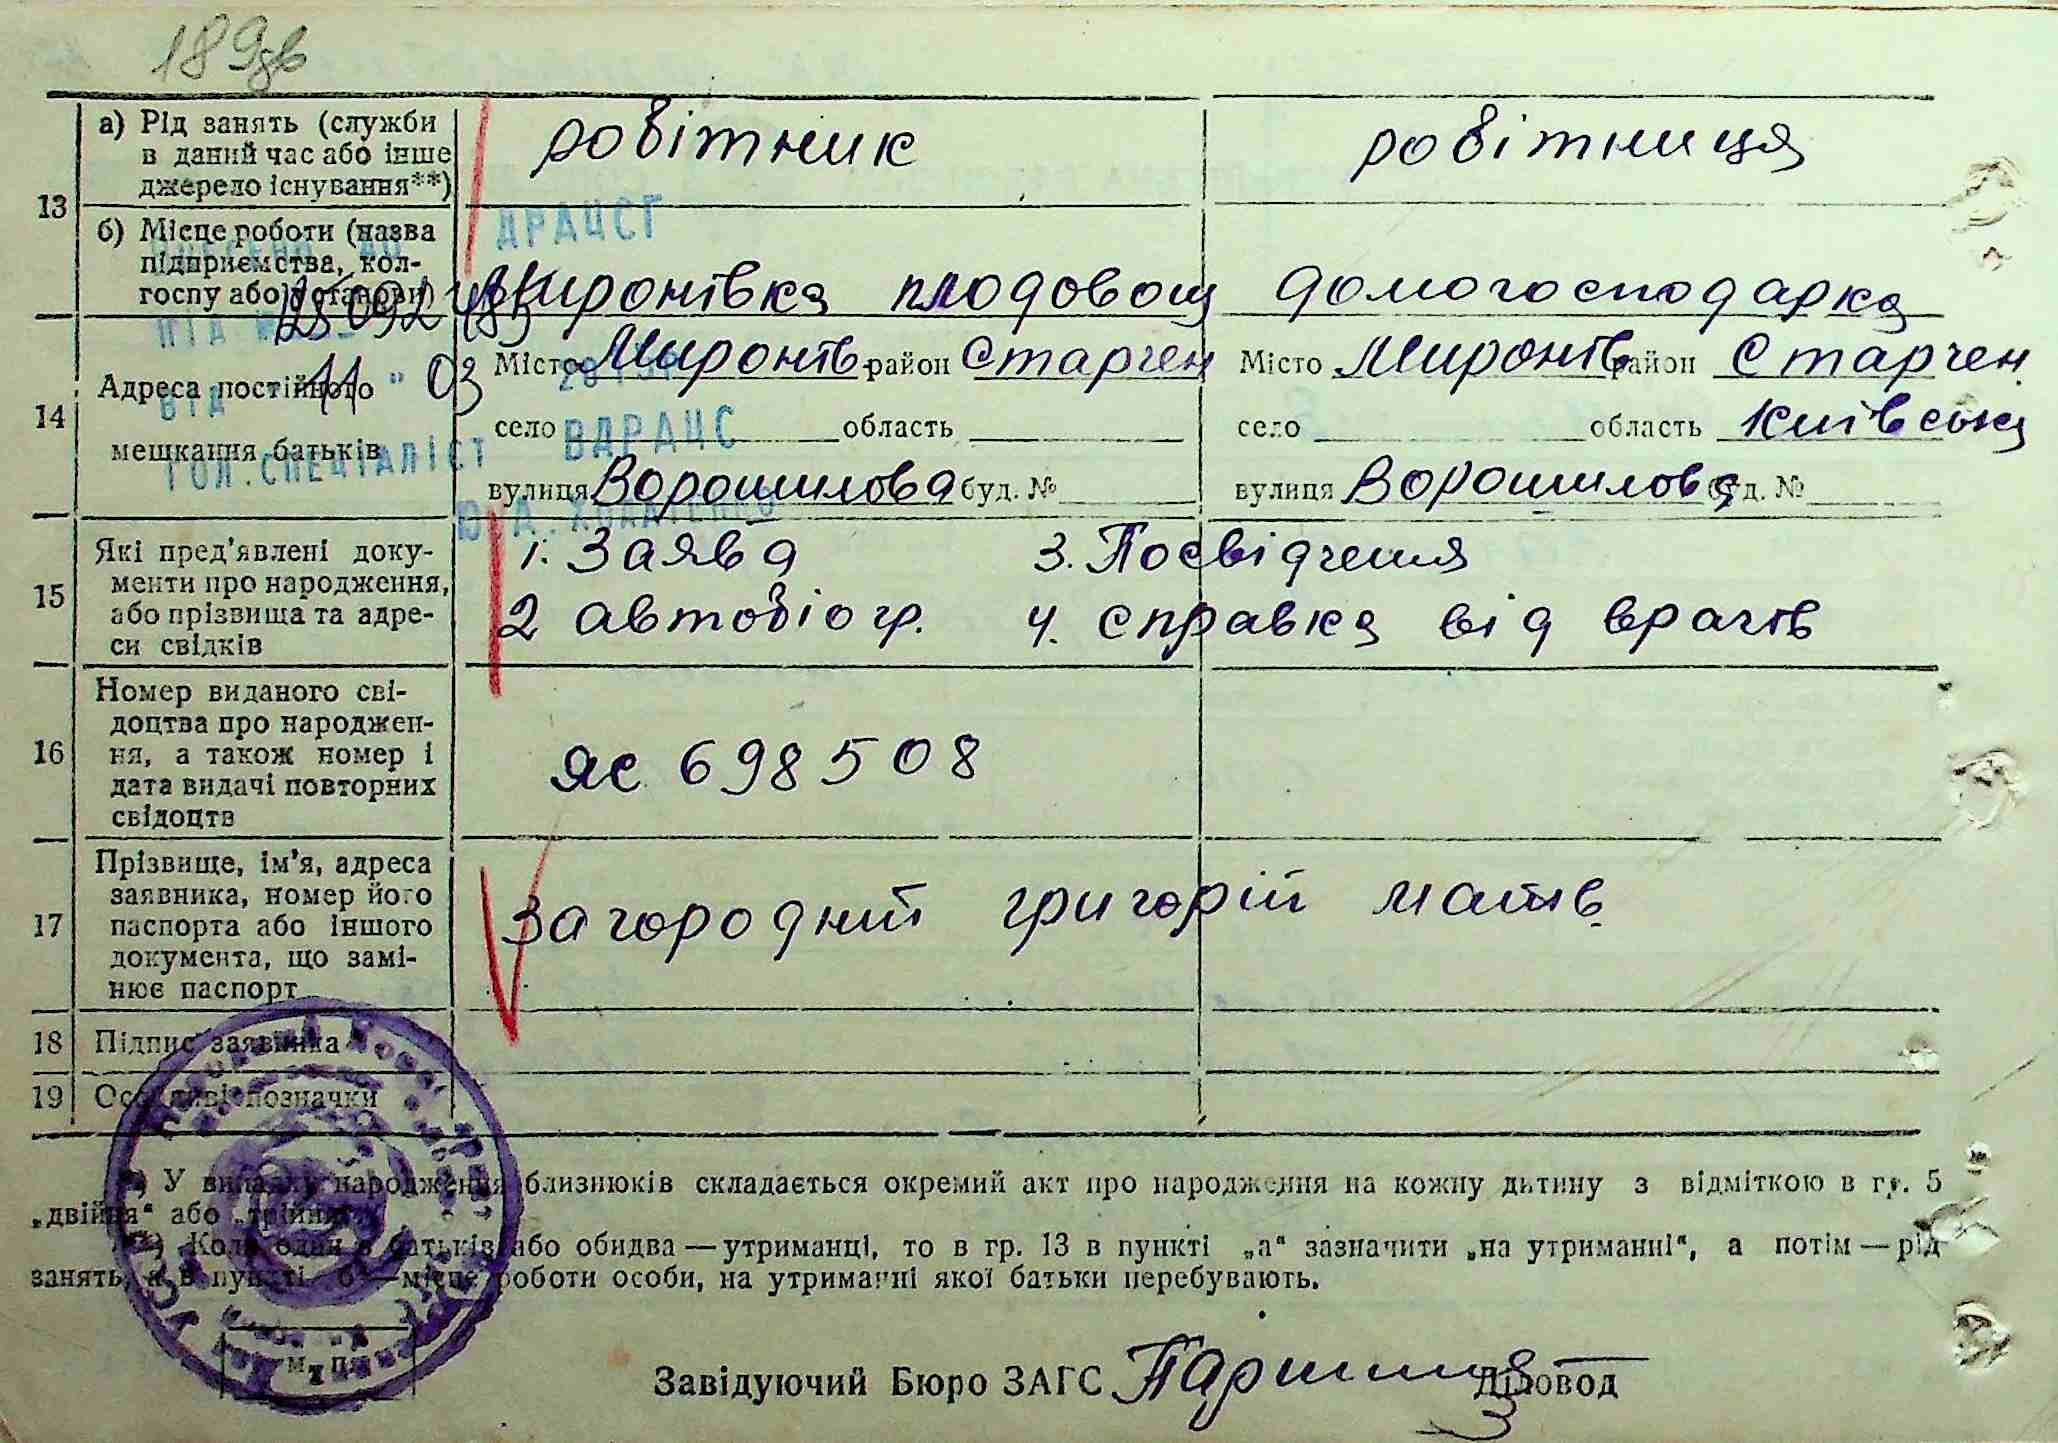 189зв
13
а) Рід занять (служби
в даний час або інше
джерело існування**)
робітник
робітниця
б) Місце роботи (назва
підприємства, кол-
госпу або установи)
Миронівка плодовощ
домогосподарка
ДРАЦСГ
14
Адреса постійного
мешкання батьків
Місто Миронів район Старчен
село область
вулиця Ворошилова буд. №
Місто Миронів район Старчен
село область Київська
вулиця Ворошилова буд. №
11 " 03
ВІД
ГОЛ. СПЕЦІАЛІСТ ВДРАЦС
15
Які пред'явлені доку-
менти про народження,
або прізвища та адре-
си свідків
1. Заява 3. Посвідчення
2 автобіогр. 4. справка від врачів
16
Номер виданого сві-
доцтва про народжен-
ня, а також номер і
дата видачі повторних
свідоцтв
яс 698508
17
Прізвище, ім'я, адреса
заявника, номер його
паспорта або іншого
документа, що замі-
нює паспорт
Загородний григорій матв.
18 Підпис заявника
19 Особливі позначки
*) У випадку народження близнюків складається окремий акт про народження на кожну дитину з відміткою в гр. 5
„двійня“ або „трійня“.
**) Коли один з батьків або обидва — утриманці, то в гр. 13 в пункті „а“ зазначити „на утриманні“, а потім — рід
занять, а в пункті „б“ — місце роботи особи, на утриманні якої батьки перебувають.
М. П.
Завідуючий Бюро ЗАГС
Діловод